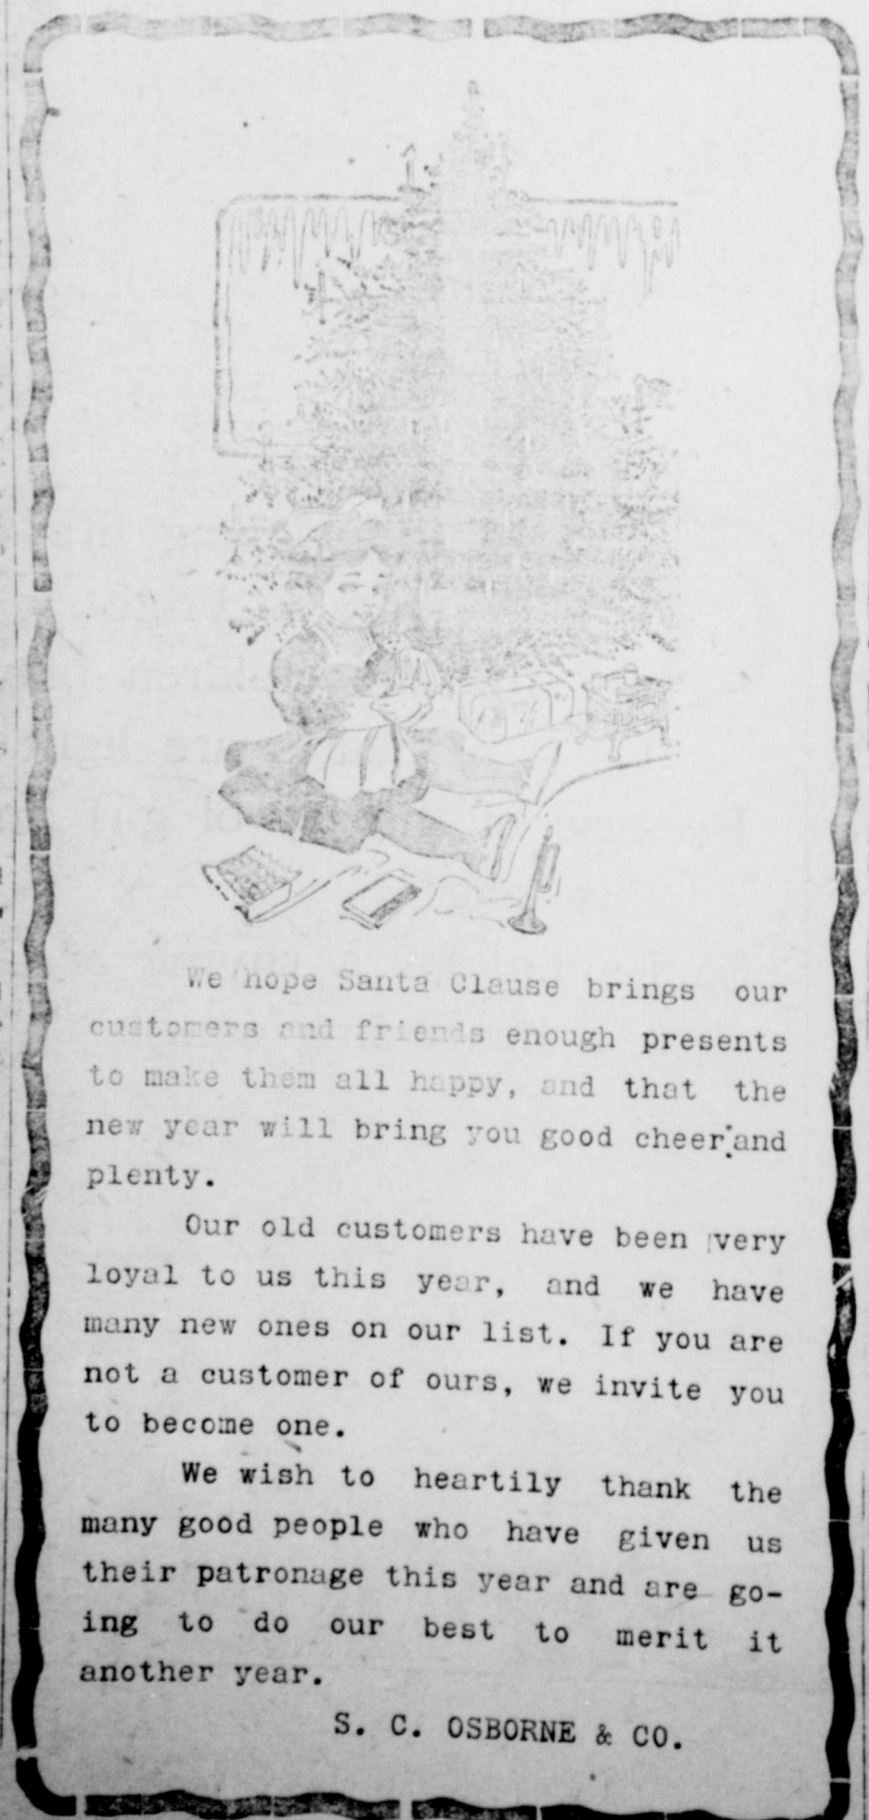 We hope Santa Clause brings our
customers and friends enough presents
to make them all happy, and that the
new year will bring you good cheer and
plenty.
Our old customers have been very
loyal to us this year, and we have
many new ones on our list. If you are
not a customer of ours, we invite you
to become one.
We wish to heartily thank the
many good people who have given us
their patronage this year and are go-
ing to do our best to merit it
another year.
S. C. OSBORNE & CO.